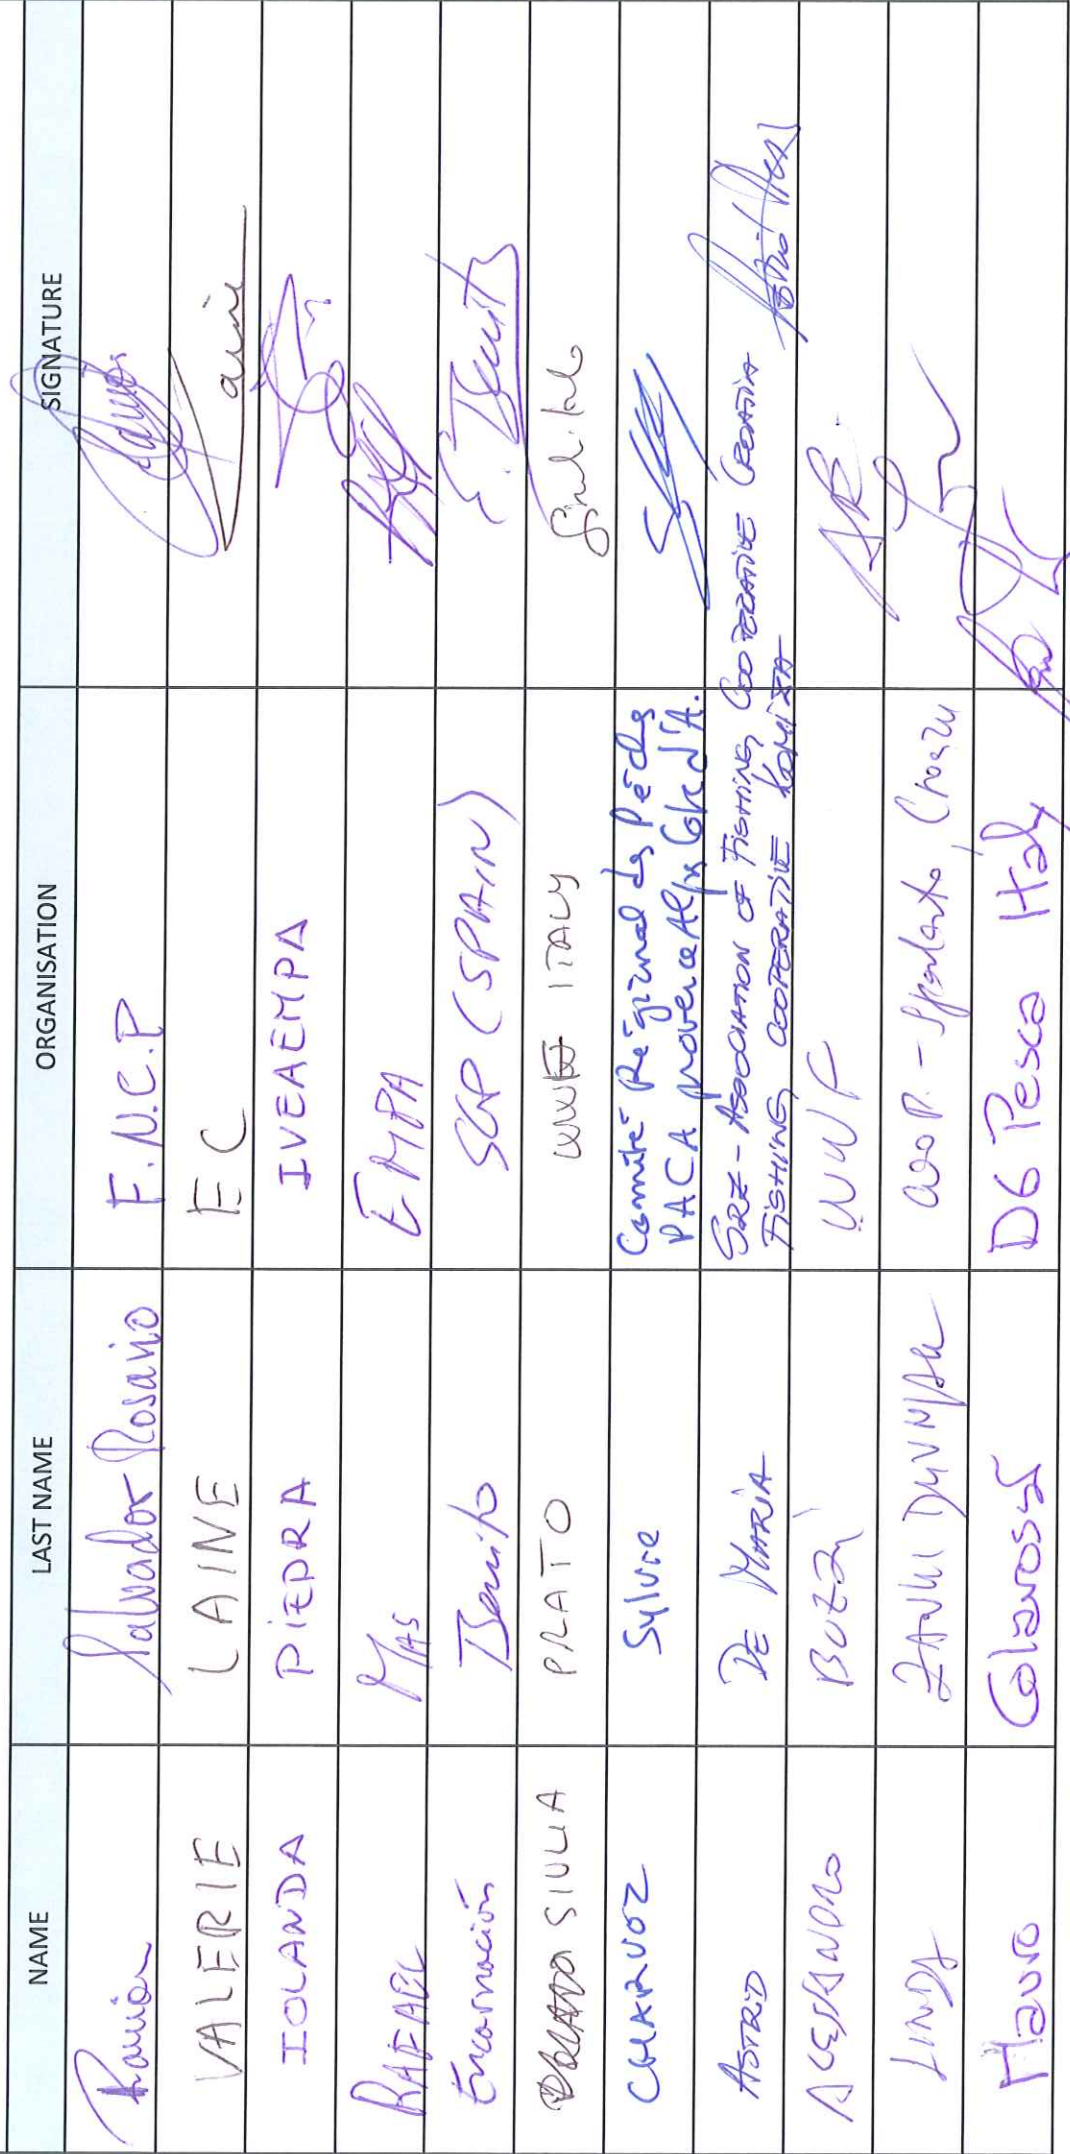 NAME LAST NAME ORGANISATION SIGNATURE
Ramón Salvador Rosario F.N.C.P
VALERIE LAINE EC Laine
IOLANDA PIEDRA IVEAEMPA
RAFAEL MAS EMPA
Encarnación Benito SGP (SPAIN) E. Benito
GIULIA PRATO WWF ITALY
CHARVOZ Sylvie Comité Régional des Pêches
PACA provence Alpes Côte d'A.
ASTRID DE MARIA SRZ - ASSOCIATION OF FISHING COOPERATIVE CROATIA
FISHING COOPERATIVE KOMIZA
ALESSANDRO BUZZI WWF AB.
LINDA
Mauro Colarossi DG Pesca Italy